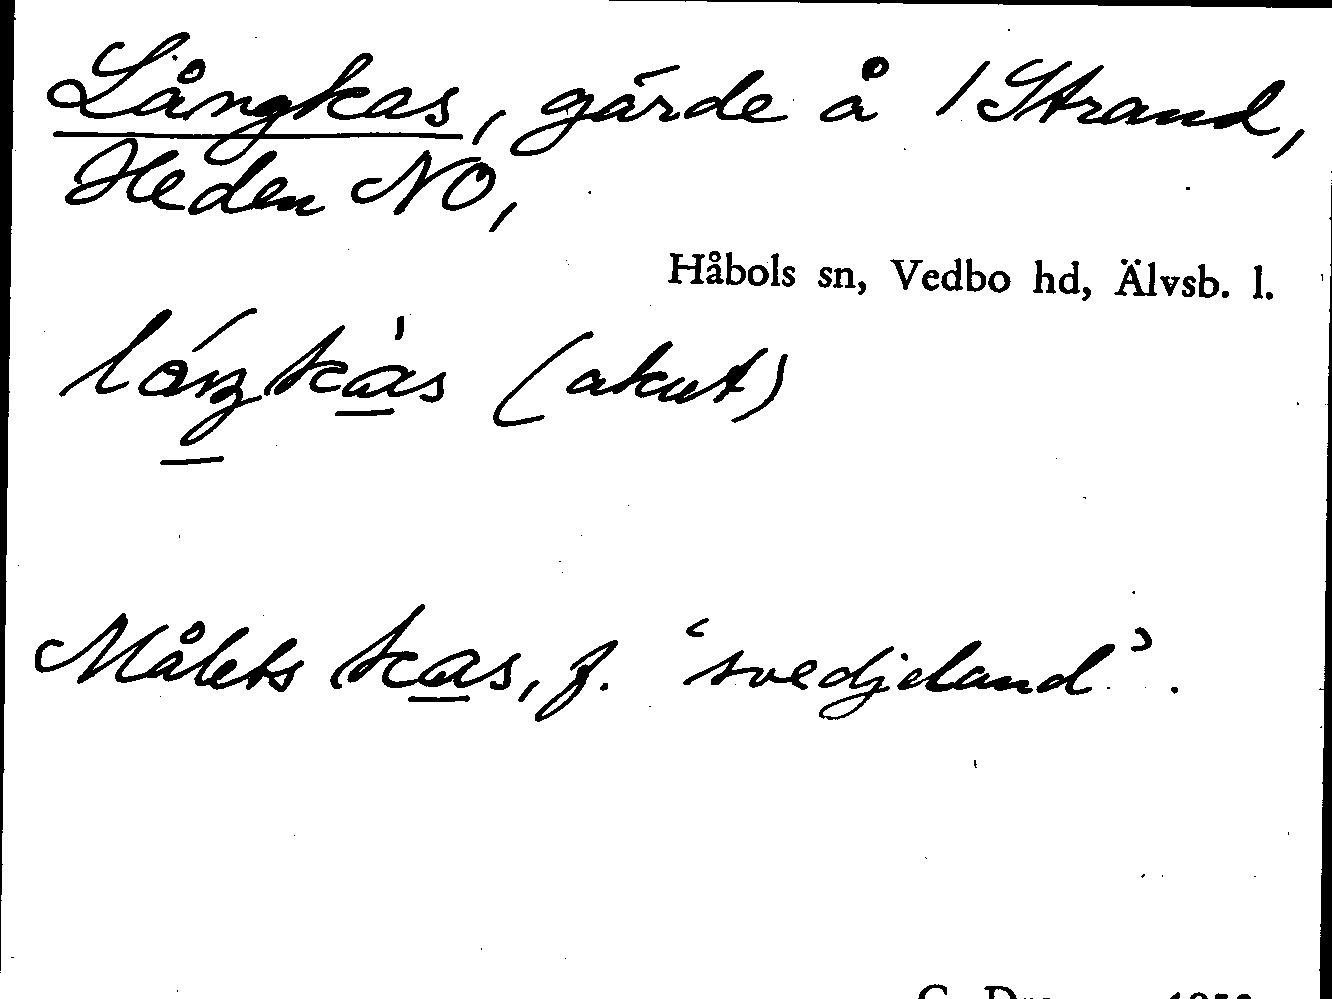 Långkas, gärde å 1 Strand,
Heden NO,
Håbols sn, Vedbo hd, Älvsb. l.
(akut)
Målets kas, f. ‘svedjeland’.